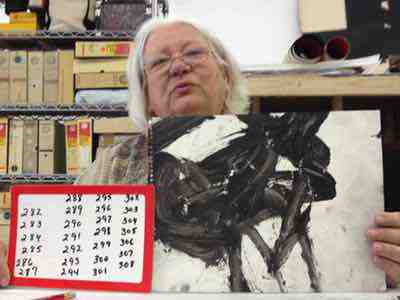 288 295 302
282 289 296 303
283 290 297 304
284 291 298 305
285 292 299 306
286 293 300 307
287 294 301 308